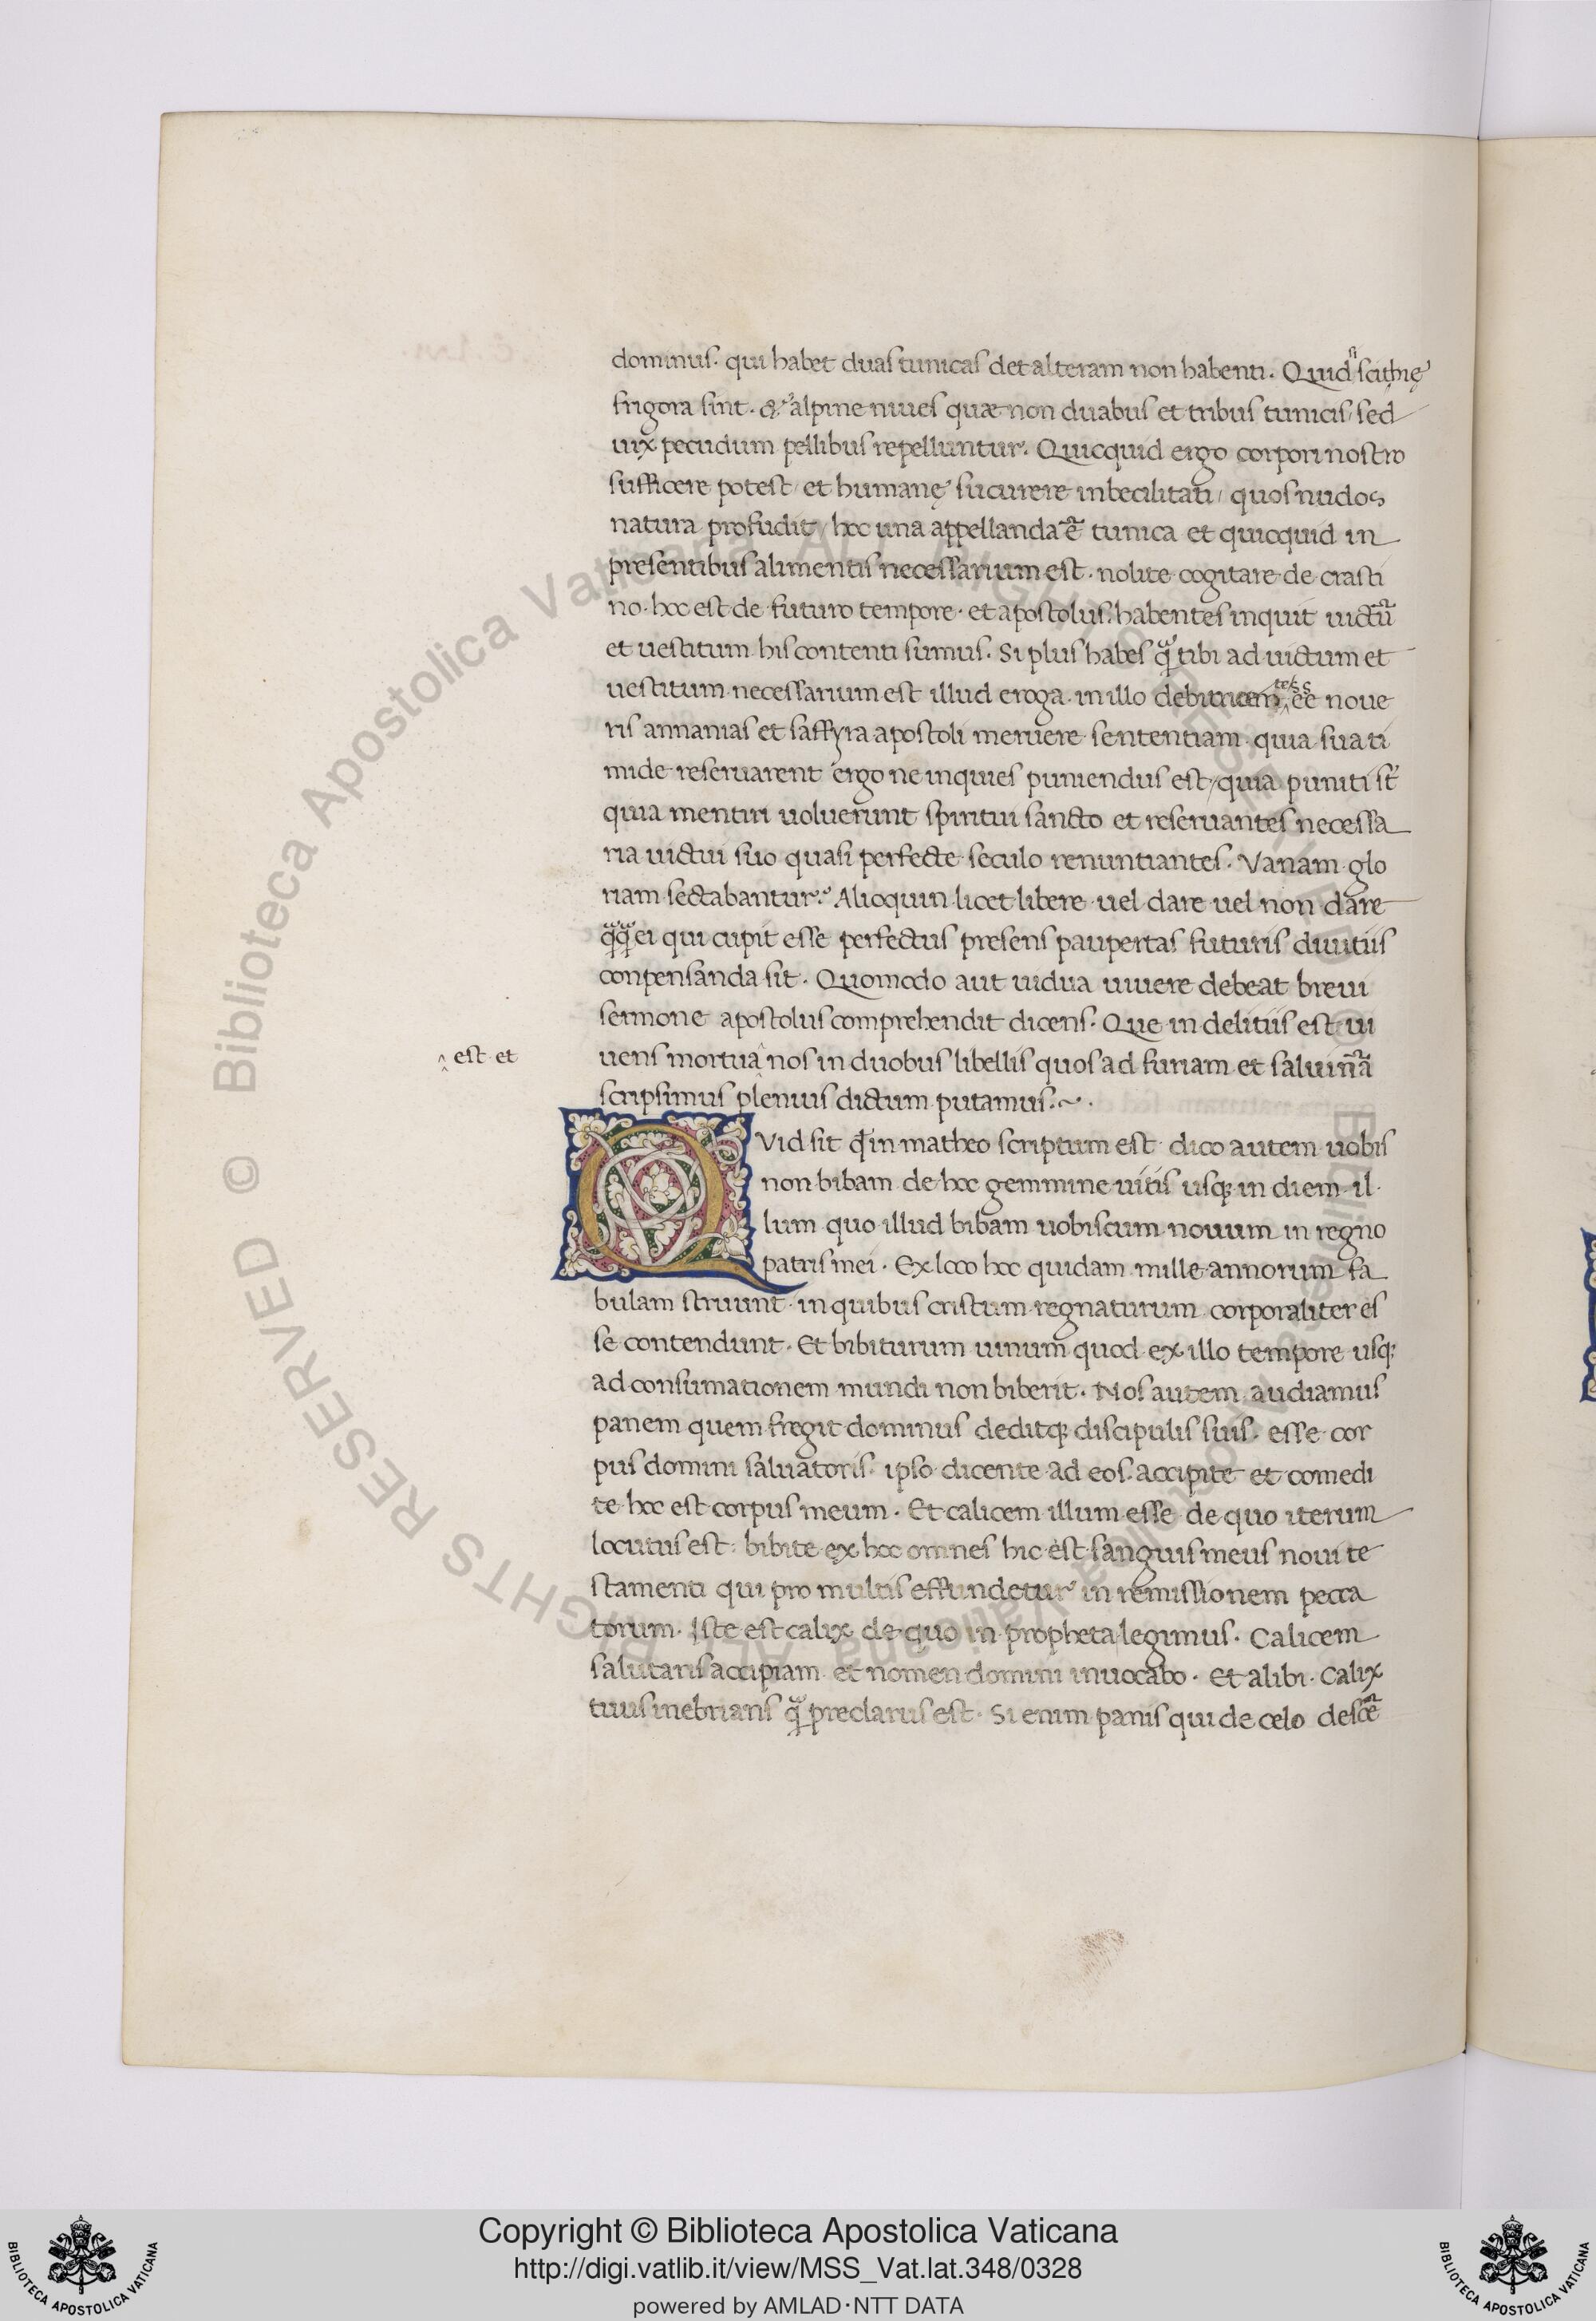 dominus. qui habet duas tunicas det alteram non habenti. Quid n̄ scithię
frigora sint. & alpine niues quæ non duabus et tribus tunicis sed
uix pecudum pellibus repelluntur. Quicquid ergo corpori nostro
sufficere potest et humanę sucurere inbecilitati quos nudos
natura profudit hoc una appellanda ē tunica et quicquid in
presentibus alimentis necessarium est. nolite cogitare de crasti
no. hoc est de futuro tempore. et apostolus. habentes inquit uictū
et uestitum his contenti sumus. Si plus habes q̄ tibi ad uictum et
uestitum necessarium est illud eroga. in illo debitricem te ēē noue
ris annanias et saffyra apostoli meruere sententiam quia sua ti
mide reseruarent ergo ne inquies puniendus est quia puniti st̄
quia mentiri uoluerunt spiritui sancto et reseruantes necessa
ria uictui suo quasi perfecte seculo renuntiantes. Vanam glo
riam sectabantur. Alioquin licet libere uel dare uel non dare
q̄q̄ ei qui cupit esse perfectus presens paupertas futuris diuitiis
conpensanda sit. Quomodo aut uidua uiuere debeat breui
sermone apostolus comprehendit dicens. Que in delitiis est ui
‸ est et
uens mortua‸ nos in duobus libellis quos ad furiam et saluinā
scripsimus plenius dictum putamus. ~.
QVid sit q̄ in matheo scriptum est dico autem uobis
non bibam de hoc gemmine uitis usq; in diem il
lum quo illud bibam uobiscum nouum in regno
patris mei. Ex loco hoc quidam mille annorum fa
bulam struunt in quibus cristum regnaturum corporaliter es
se contendunt. Et bibiturum uinum quod ex illo tempore usq;
ad consumationem mundi non biberit. Nos autem audiamus
panem quem fregit dominus deditq; discipulis suis. esse cor
pus domini saluatoris ipso dicente ad eos. accipite et comedi
te hoc est corpus meum. Et calicem illum esse de quo iterum
locutus est. bibite ex hoc omnes hic est sanguis meus noui te
stamenti qui pro multis effundetur in remissionem pecca
torum. Iste est calix de quo in propheta legimus. Calicem
salutaris accipiam et nomen domini inuocabo. Et alibi. Calix
tuus inebrians q̄ preclarus est. Si enim panis qui de celo descē
© Biblioteca Apostolica Vaticana ALL RIGHTS RESERVED
Copyright © Biblioteca Apostolica Vaticana
http://digi.vatlib.it/view/MSS_Vat.lat.348/0328
powered by AMLAD·NTT DATA
BIBLIOTECA APOSTOLICA VATICANA
BIBLIOTECA APOSTOLICA VATICANA